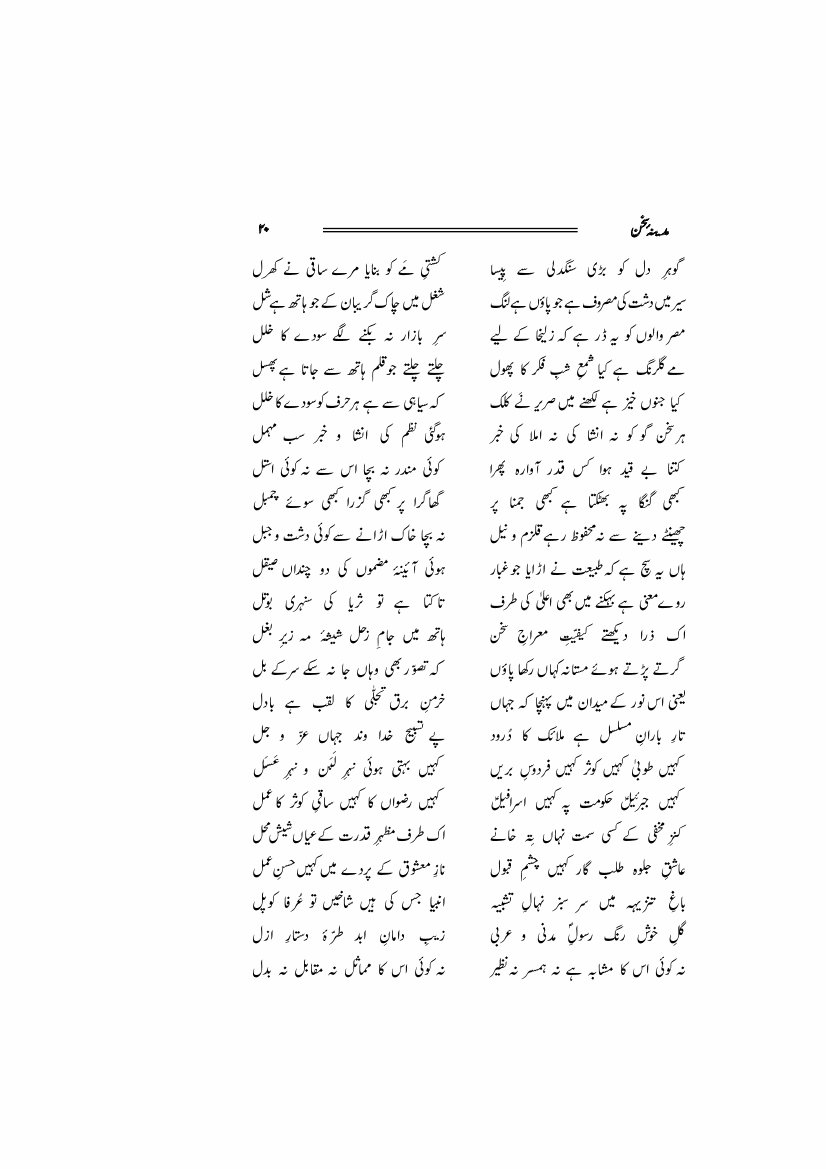 مدینۂ سخن ۲۰
گوہرِ دل کو بڑی سنگدلی سے پِیسا کشتیِ مَے کو بنایا مرے ساقی نے کھرل
سیر میں دشت کی مصروف ہے جو پاؤں ہے لنگ شغل میں چاک گریبان کے جو ہاتھ ہے شل
مصر والوں کو یہ ڈر ہے کہ زلیخا کے لیے سرِ بازار نہ بکنے لگے سودے کا خلل
مے گلرنگ ہے کیا شمعِ شبِ فکر کا پھول چلتے چلتے جو قلم ہاتھ سے جاتا ہے پھسل
کیا جنوں خیز ہے لکھنے میں صریرِ نَے کلک کہ سیاہی سے ہے ہر حرف کو سودے کا خلل
ہر سخن گو کو نہ انشا کی نہ املا کی خبر ہوگئی نظم کی انشا و خبر سب مہمل
کتنا بے قید ہوا کس قدر آوارہ پھرا کوئی مندر نہ بچا اس سے نہ کوئی استل
کبھی گنگا پہ بھٹکتا ہے کبھی جمنا پر گھاگرا پر کبھی گزرا کبھی سوئے چمبل
چھینٹے دینے سے نہ محفوظ رہے قلزم و نیل نہ بچا خاک اڑانے سے کوئی دشت و جبل
ہاں یہ سچ ہے کہ طبیعت نے اڑایا جو غبار ہوئی آئینۂ مضموں کی دو چنداں صیقل
روے معنی ہے بہکنے میں بھی اعلیٰ کی طرف تاکتا ہے تو ثریا کی سنہری بوتل
اک ذرا دیکھئے کیفیّتِ معراجِ سخن ہاتھ میں جامِ زحل شیشۂ مہ زیرِ بغل
گرتے پڑتے ہوئے مستانہ کہاں رکھا پاؤں کہ تصوّر بھی وہاں جا نہ سکے سر کے بل
یعنی اس نور کے میدان میں پہنچا کہ جہاں خرمنِ برق تجلّی کا لقب ہے بادل
تارِ بارانِ مسلسل ہے ملائک کا دُرود پے تسبیح خدا وند جہاں عزّ و جل
کہیں طوبیٰ کہیں کوثر کہیں فردوسِ بریں کہیں بہتی ہوئی نہرِ لَبَن و نہرِ عَسَل
کہیں جبرئیلؑ حکومت پہ کہیں اسرافیلؑ کہیں رضواں کا کہیں ساقیِ کوثر کا عمل
کنزِ مخفی کے کسی سمت نہاں تِہ خانے اک طرف مظہرِ قدرت کے عیاں شیش محل
عاشقِ جلوہ طلب گار کہیں چشمِ قبول نازِ معشوق کے پردے میں کہیں حسنِ عمل
باغِ تنزیہہ میں سر سبز نہالِ تشبیہ انبیا جس کی ہیں شاخیں تو عُرفا کوپل
گلِ خوش رنگ رسولِؐ مدنی و عربی زیبِ دامانِ ابد طرّۂ دستارِ ازل
نہ کوئی اس کا مشابہ ہے نہ ہمسر نہ نظیر نہ کوئی اس کا مماثل نہ مقابل نہ بدل